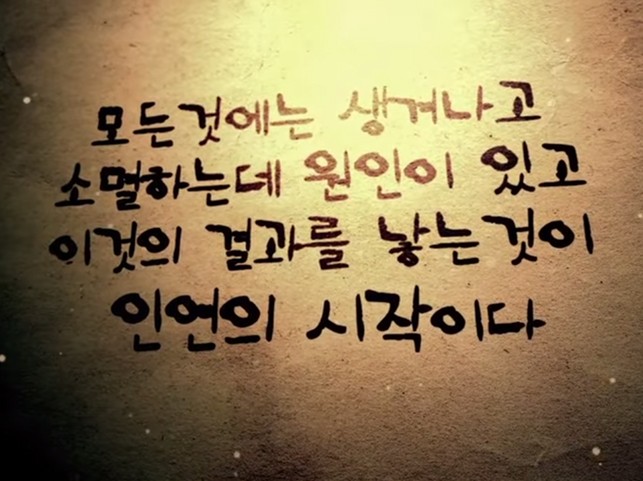 모든것에는 생겨나고
소멸하는데 원인이 있고
이것의 결과를 낳는것이
인연의 시작이다